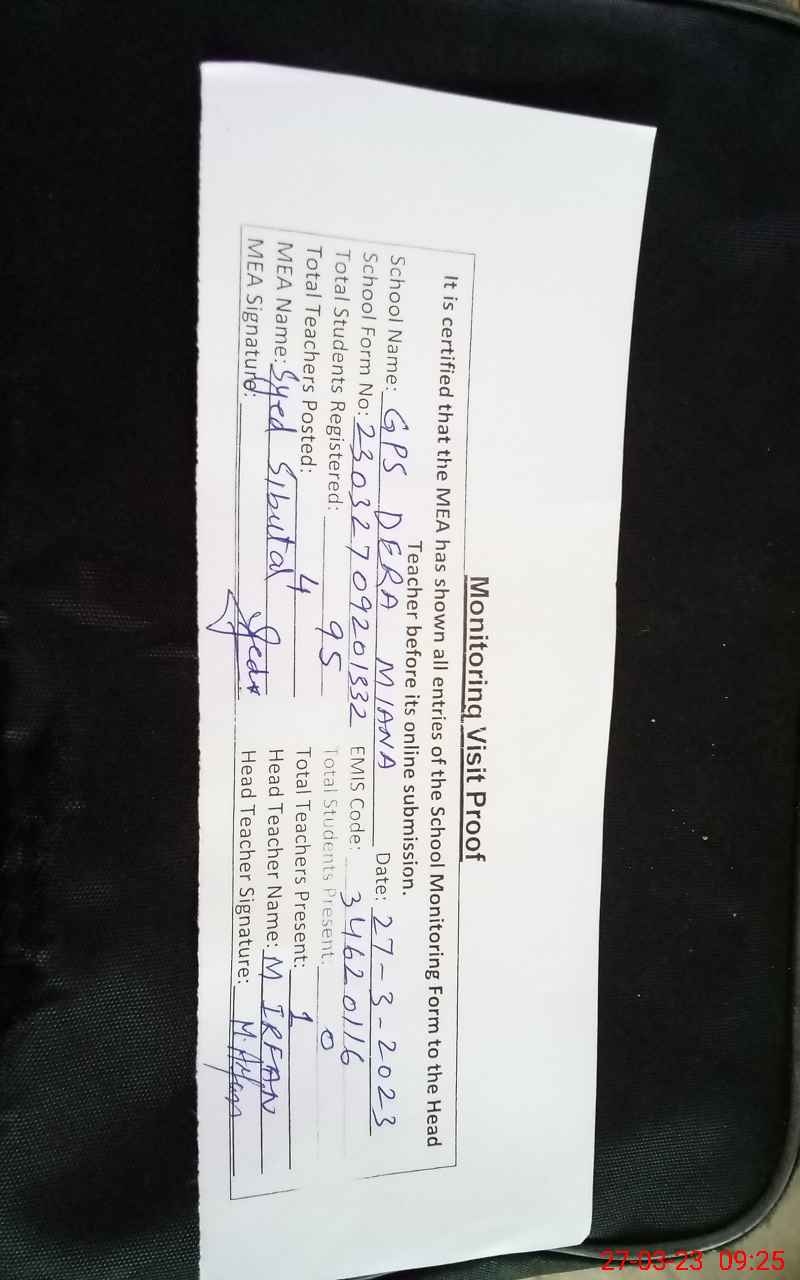 Monitoring Visit Proof
It is certified that the MEA has shown all entries of the School Monitoring Form to the Head
Teacher before its online submission.
School Name: GPS DERA MIANA Date: 27-3-2023
School Form No: 23032709201332 EMIS Code: 34620116
Total Students Registered: 95 Total Students Present: 0
Total Teachers Posted: 4 Total Teachers Present: 1
MEA Name: Syed Sibutal Head Teacher Name: M IRFAN
MEA Signature: Head Teacher Signature:
27-03-23 09:25